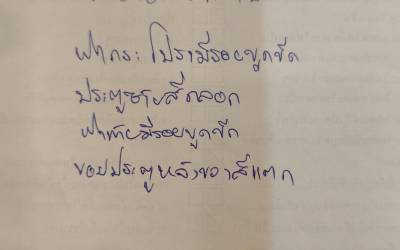 ฝากระโปรงมีรอยขูดขีด
ประตูซ้ายสีถลอก
ฝาท้ายมีรอยขูดขีด
ขอบประตูหลังขวาสีแตก